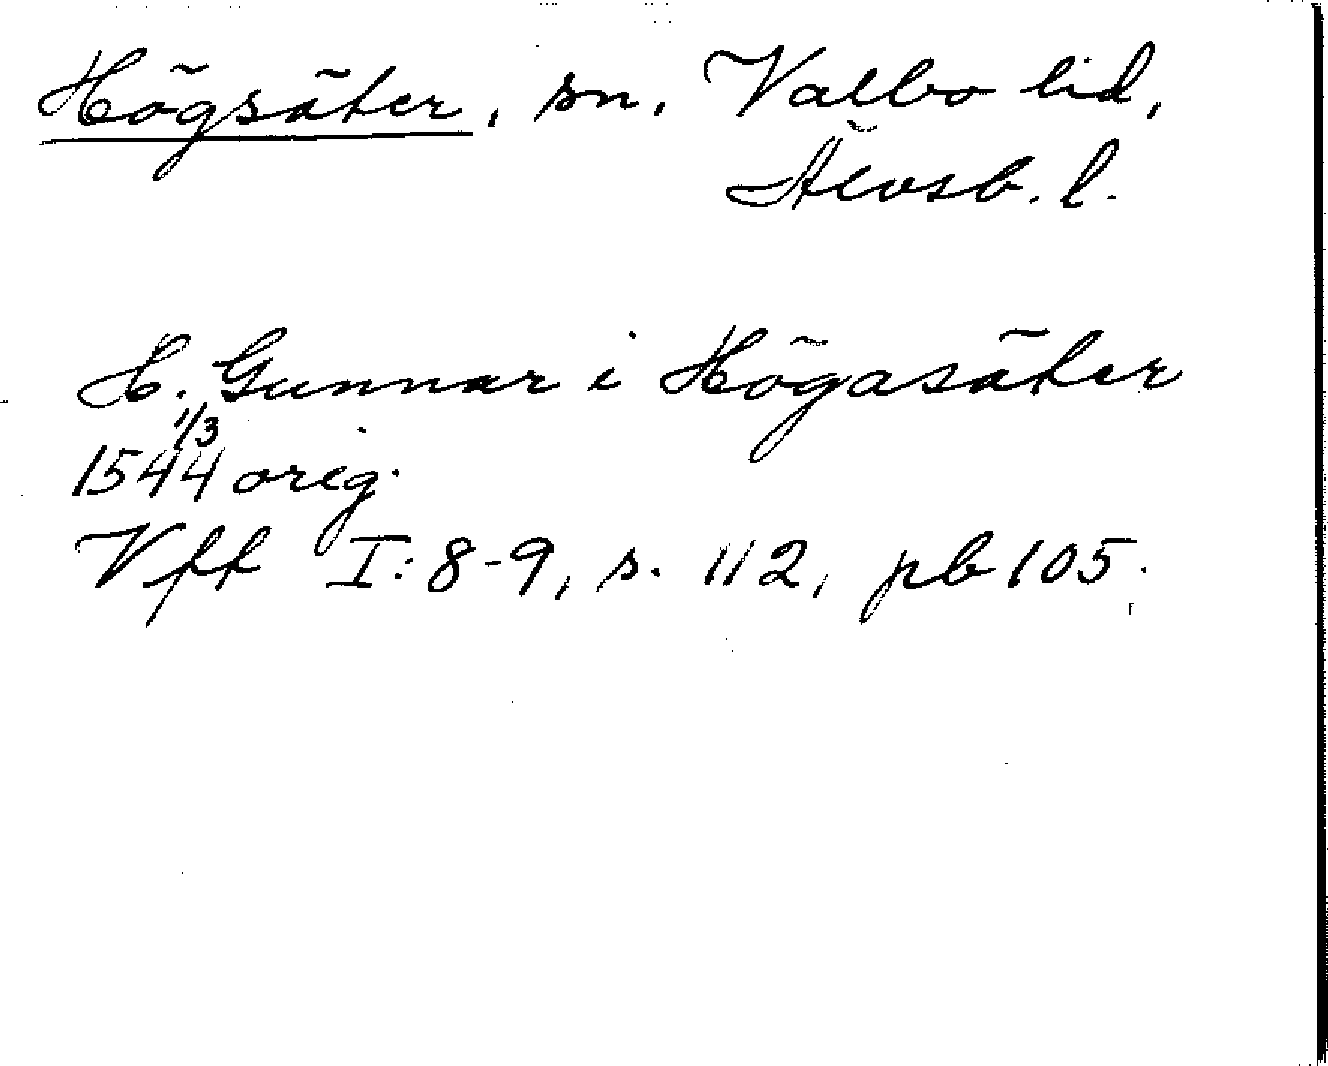 Högsäter, sn, Valbo hd,
Älvsb. l.
H. Gunnar i Högasäter
1/3
1544 orig.
Vff I: 8-9, s. 112, pb 105.